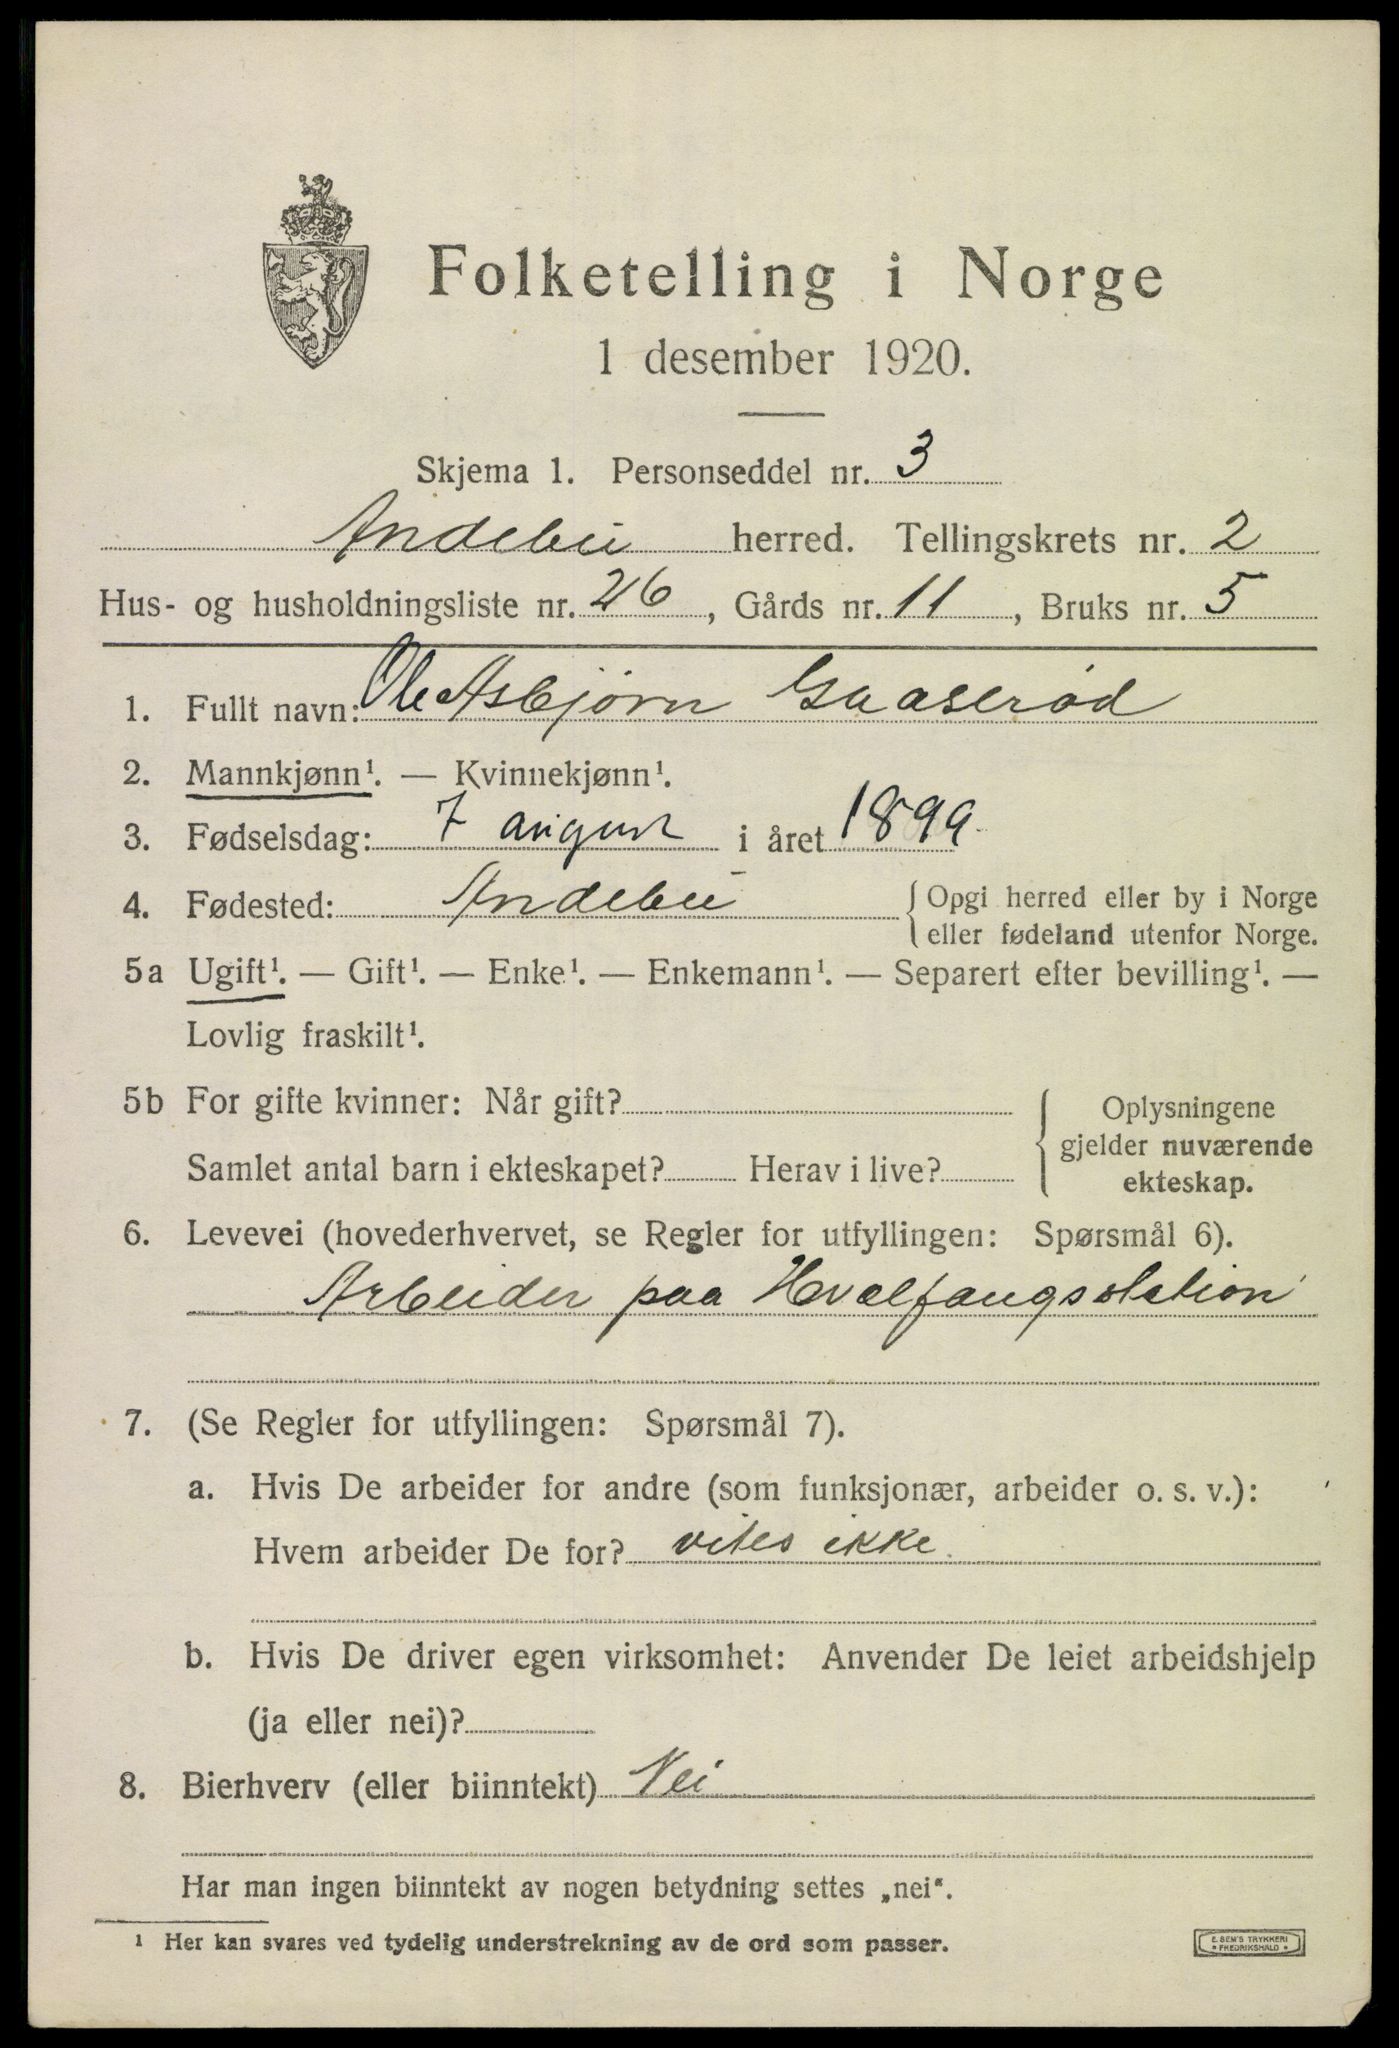 Folketelling i Norge
1 desember 1920.
Skjema 1. Personseddel nr. 3
Andebu herred. Tellingskrets nr. 2
Hus- og husholdningsliste nr. 26, Gårds nr. 11, Bruks nr. 5
1. Fullt navn: Ole Asbjørn Gaaserød
2. Mannkjønn¹. — Kvinnekjønn¹.
3. Fødselsdag: 7 august i året 1899
4. Fødested: Andebu { Opgi herred eller by i Norge
eller fødeland utenfor Norge.
5a Ugift¹. — Gift¹. — Enke¹. — Enkemann¹. — Separert efter bevilling¹. —
Lovlig fraskilt¹.
5b For gifte kvinner: Når gift?
Samlet antal barn i ekteskapet? Herav i live?
{ Oplysningene
gjelder nuværende
ekteskap.
6. Levevei (hovederhvervet, se Regler for utfyllingen: Spørsmål 6).
Arbeider paa Hvalfangsstation
7. (Se Regler for utfyllingen: Spørsmål 7).
a. Hvis De arbeider for andre (som funksjonær, arbeider o. s. v.):
Hvem arbeider De for? vites ikke.
b. Hvis De driver egen virksomhet: Anvender De leiet arbeidshjelp
(ja eller nei)?
8. Bierhverv (eller biinntekt) Nei
Har man ingen biinntekt av nogen betydning settes „nei“.
¹ Her kan svares ved tydelig understrekning av de ord som passer.
E. SEM'S TRYKKERI
• FREDRIKSHALD •